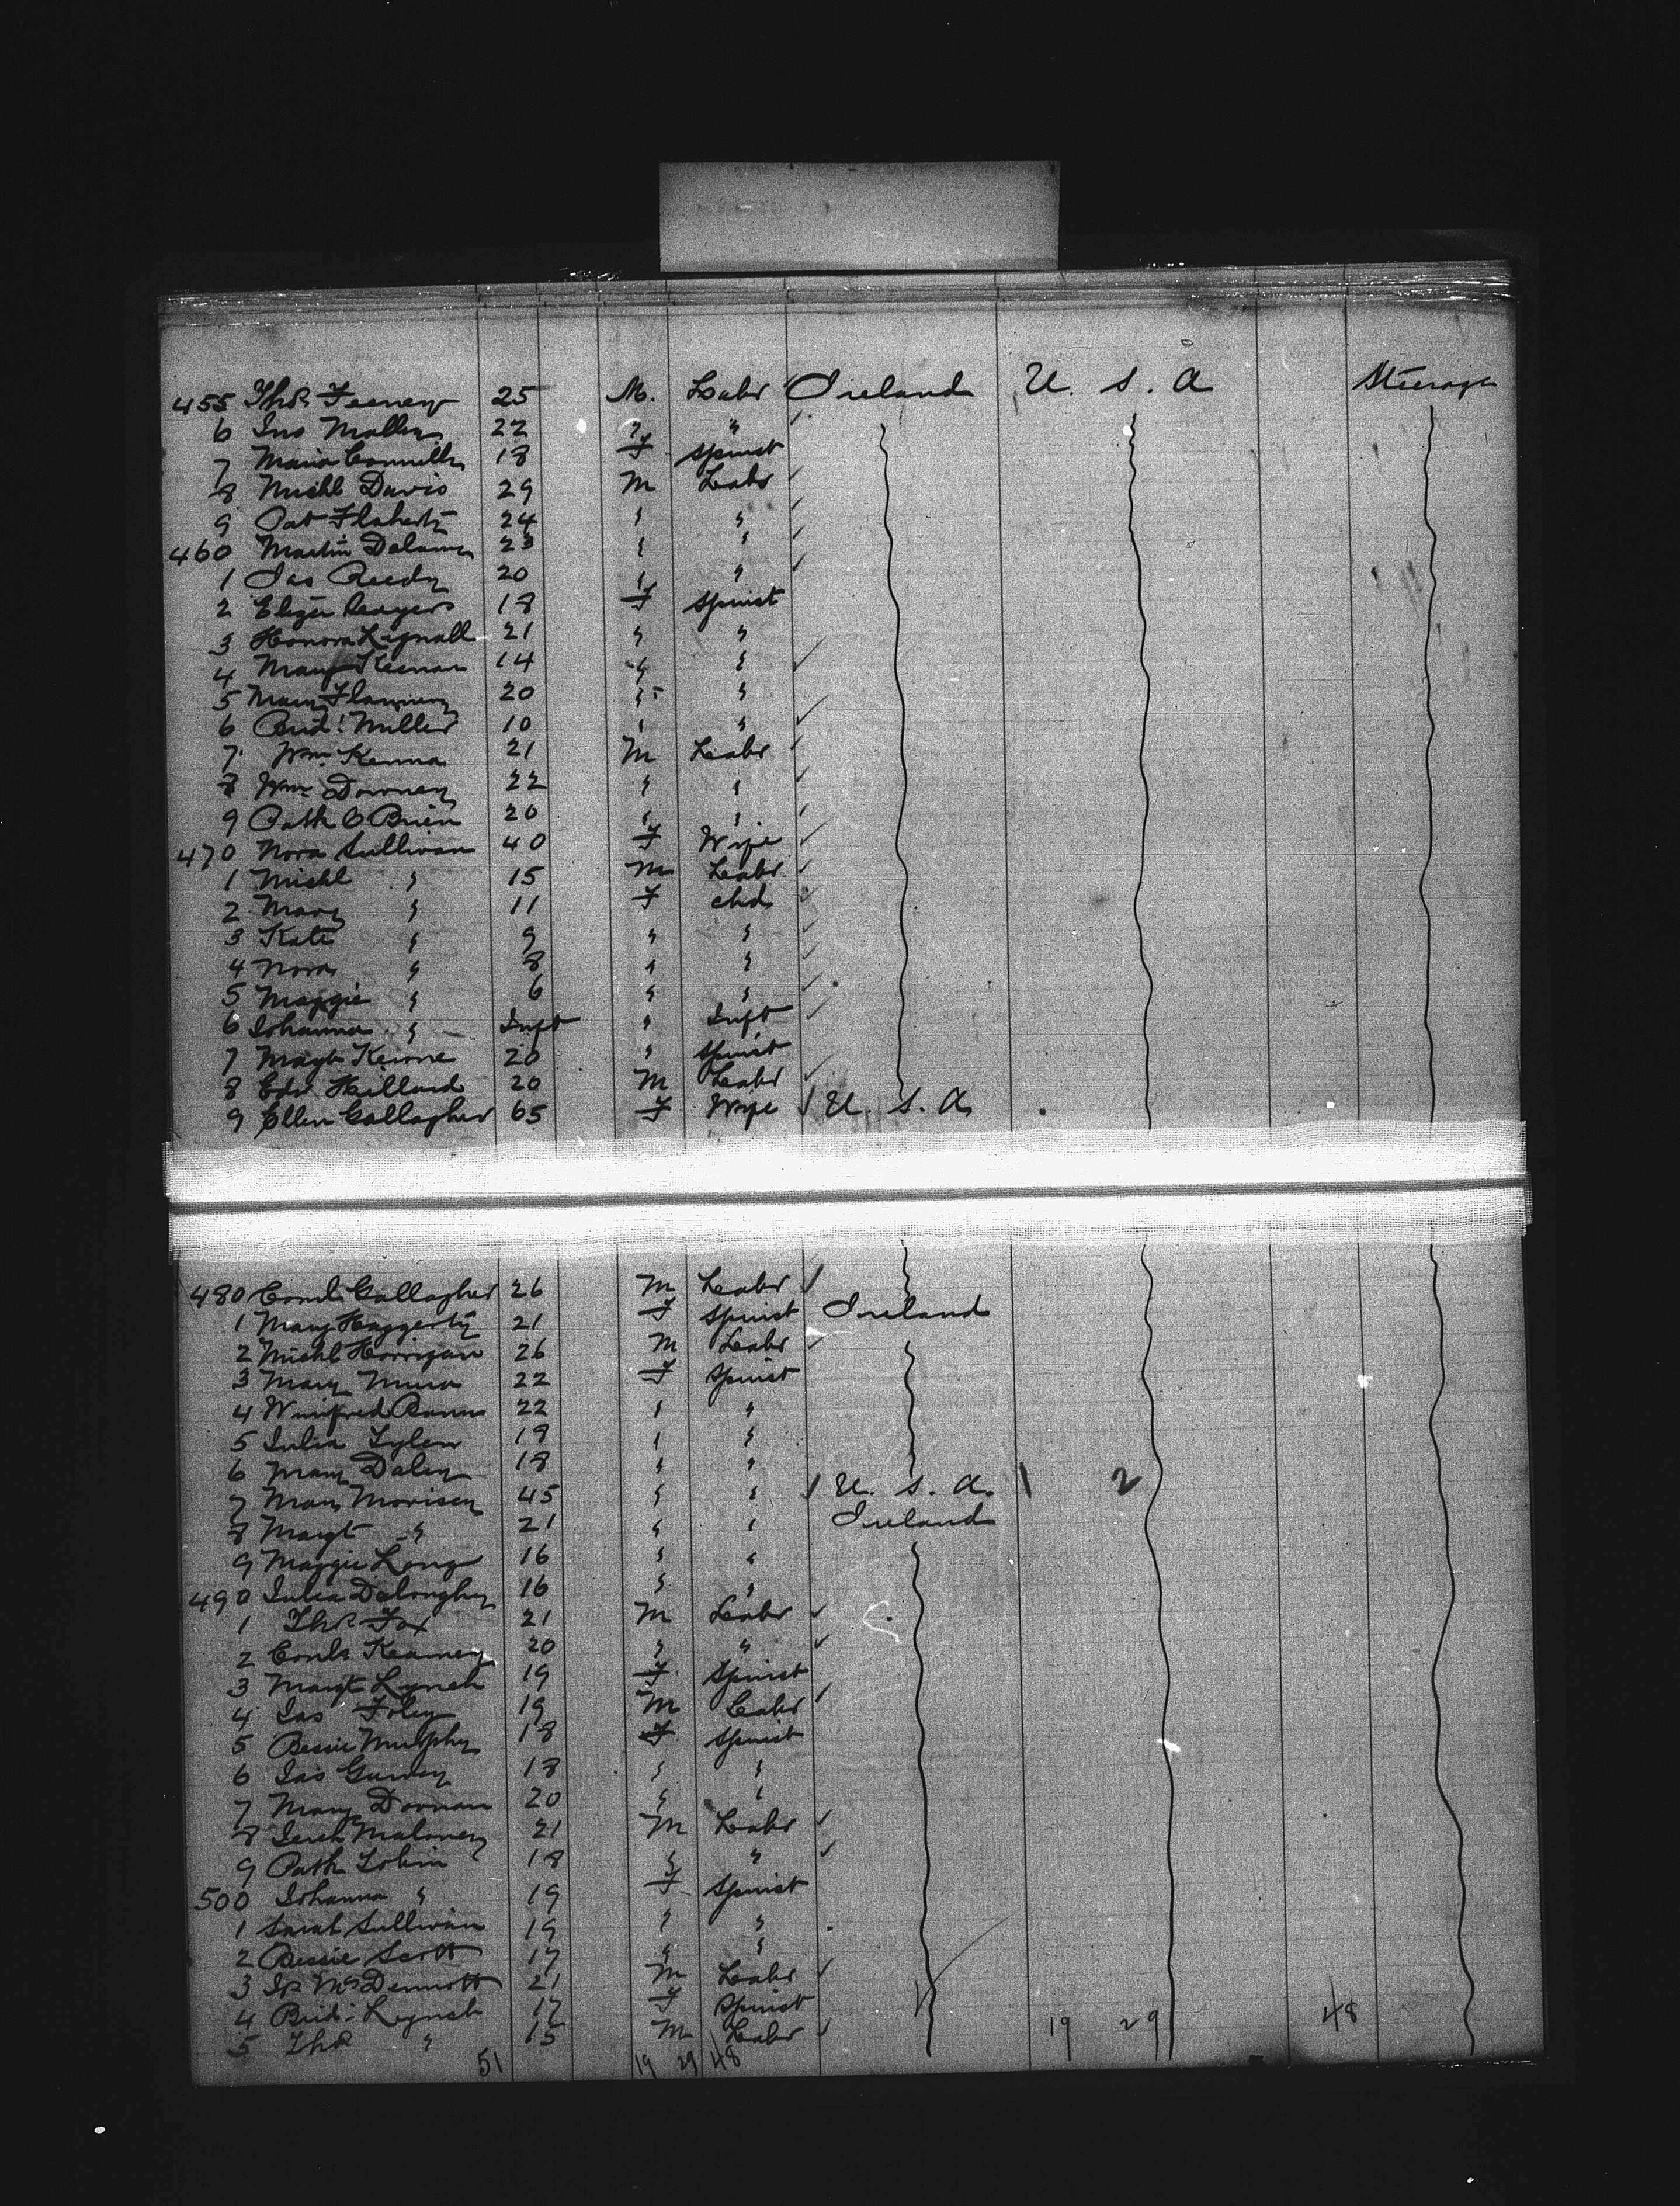 455 Thos Feeney 25 M. Labr Ireland U. S. A Steerage
6 Jno Malley 22 " "
7 Maria Connelly 18 F Spinst
8 Michl Davis 29 M Labr
9 Pat Flaherty 24 " "
460 Martin Delaney 23 " "
1 Jas Reedy 20 " "
2 Eliza 18 F Spinst
3 Honora 21 " "
4 Mary Keenan 14 " "
5 Mary Flannery 20 " "
6 Brid: Miller 10 " "
7 Wm Kenna 21 M Labr
8 Wm Downey 22 " "
9 Patk O Brien 20 " "
470 Nora Sullivan 40 F Wife
1 Michl " 15 M Labr
2 Mary " 11 F chd
3 Kate " 9 " "
4 Nora " 8 " "
5 Maggie " 6 " "
6 Johanna " Inft " Inft
7 Magt Keirne 20 " Spinst
8 Edw Hilliard 20 M Labr
9 Ellen Gallagher 65 F Wife U. S. A.
480 Cornl Gallagher 26 M Labr
1 Mary Haggerty 21 F Spinst Ireland
2 Michl Horrigan 26 M Labr
3 Mary 22 F Spinst
4 Winifred 22 " "
5 Julia 19 " "
6 Mary Daley 18 " "
7 Mary Morrisey 45 " " U. S. A. 1 2
8 Margt " 21 " " Ireland
9 Maggie Long 16 " "
490 Julia Deloughry 16 " "
1 Thos Fox 21 M Labr
2 Cornls Kearney 20 " "
3 Margt Lynch 19 F Spinst
4 Jas Foley 19 M Labr
5 Bessie Murphy 18 F Spinst
6 Jas 18 " "
7 Mary Doonan 20 " "
8 Jereh Maloney 21 M Labr
9 Patk Tobin 18 " "
500 Johanna " 19 F Spinst
1 Sarah Sullivan 19 " "
2 Bessie Scott 17 " "
3 Jas McDermott 21 M Labr
4 Brid: Lynch 17 F Spinst
5 Thos " 15 M Labr 19 29 48
51 19 29 48